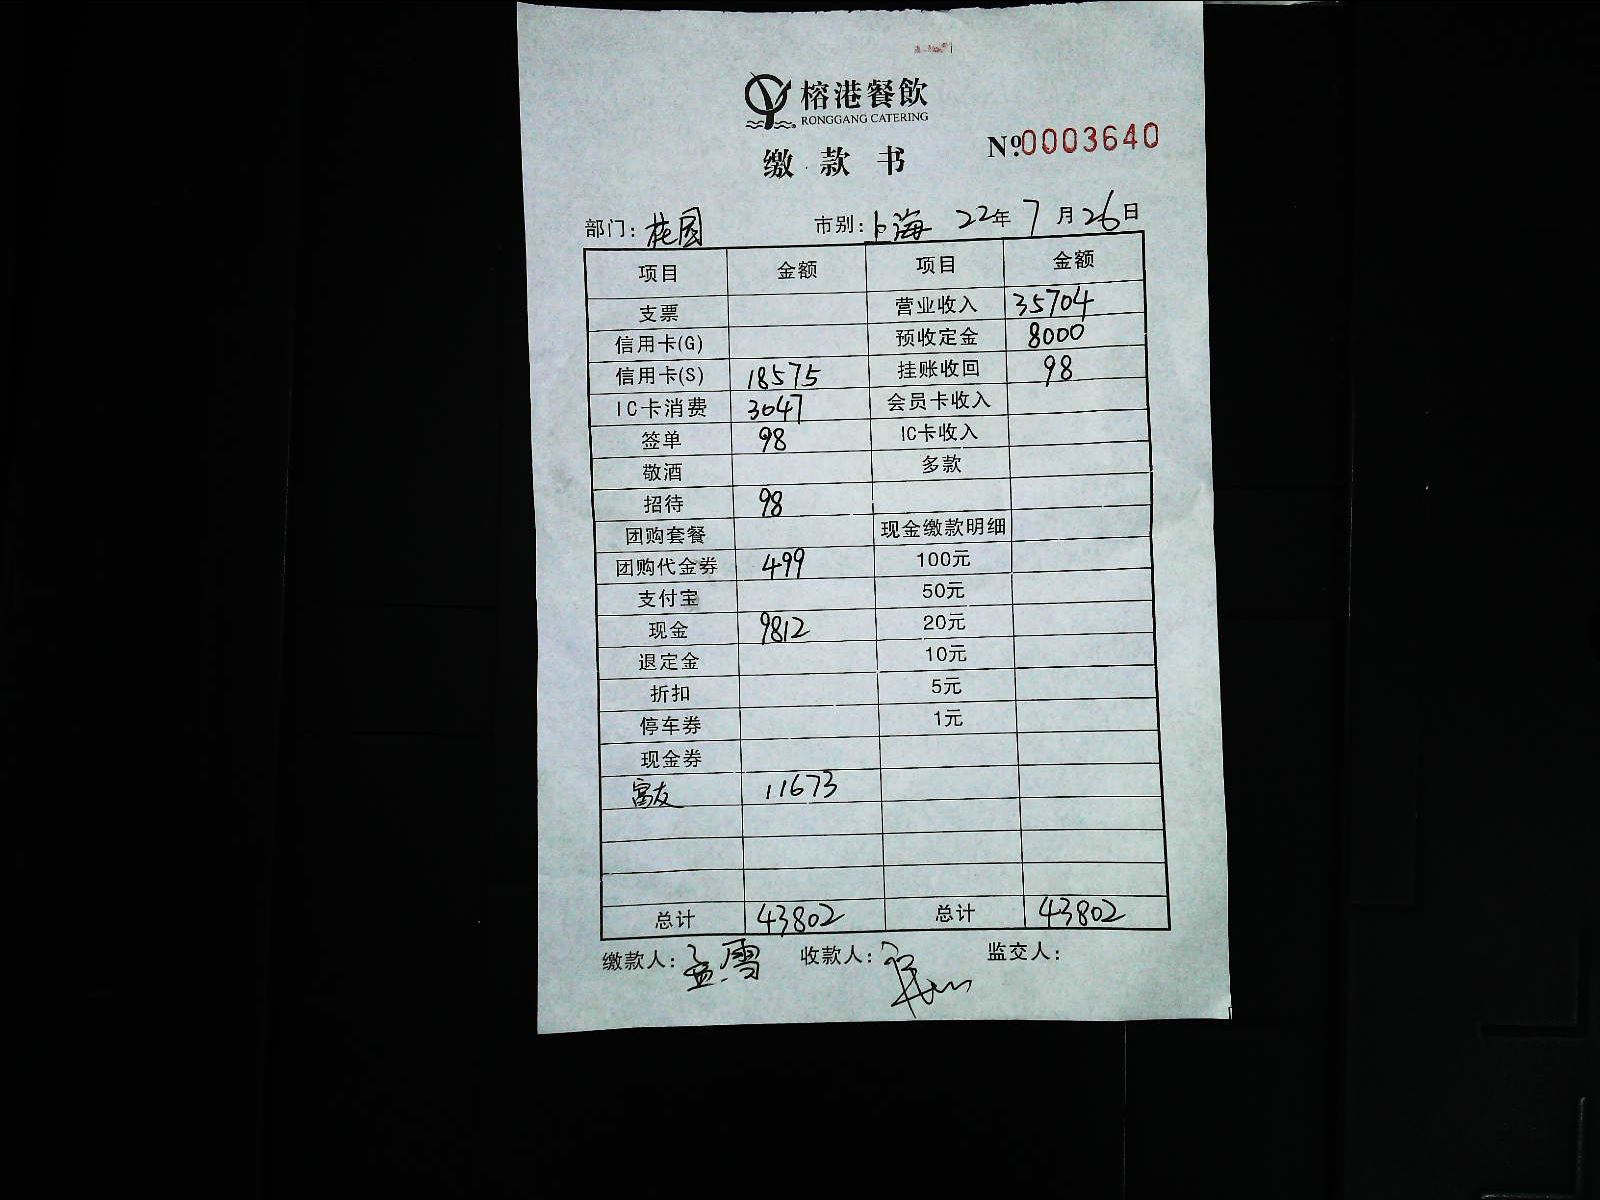 榕港餐飲
RONGGANG CATERING
缴款书
№0003640
部门：桂园 市别：上海 22年7月26日
项目 金额 项目 金额
支票 营业收入 35704
信用卡(G) 预收定金 8000
信用卡(S) 18575 挂账收回 98
IC卡消费 3047 会员卡收入
签单 98 IC卡收入
敬酒 多款
招待 98
团购套餐 现金缴款明细
团购代金券 499 100元
支付宝 50元
现金 9812 20元
退定金 10元
折扣 5元
停车券 1元
现金券
富友 11673
总计 43802 总计 43802
缴款人：孟雪 收款人： 监交人：